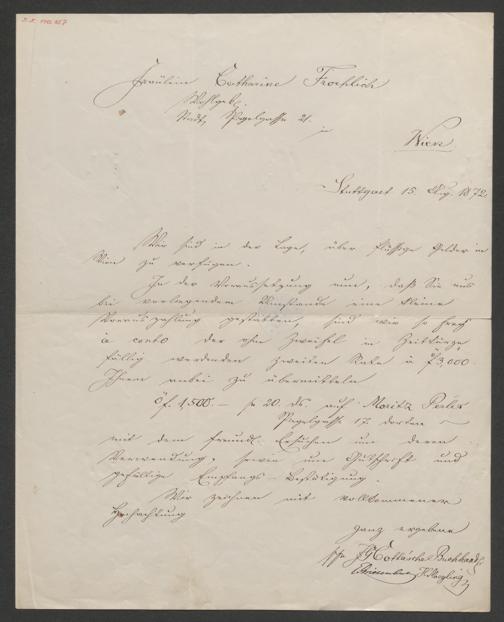 Fräulein Catharine Froehlich
Wohlgeb.
Stadt, Spiegelgasse 21.
in
Wien
Stuttgart 15. Aug. 1872.
Wir sind in der Lage, über flüssige Gelder in
Wien zu verfügen.
In der Voraussetzung nun, daß Sie uns
bei vorliegendem Umstande eine kleine
Vorauszahlung gestatten, sind wir so frei
à conto der ohne Zweifel in Zeitkürze
fällig werdenden zweiten Rate à f 3,000
Ihnen anbei zu übermitteln
ö f. 1,500.— pr 20. ds. auf Moritz Perles
Spiegelgasse 17. dorten
mit dem freundl. Ersuchen um deren
Verwendung, sowie um Gutschrift und
gefällige Empfangs-Bestätigung.
Wir zeichnen mit vollkommener
Hochachtung
ganz ergebene
ppa J. G. Cotta'sche Buchhandl.